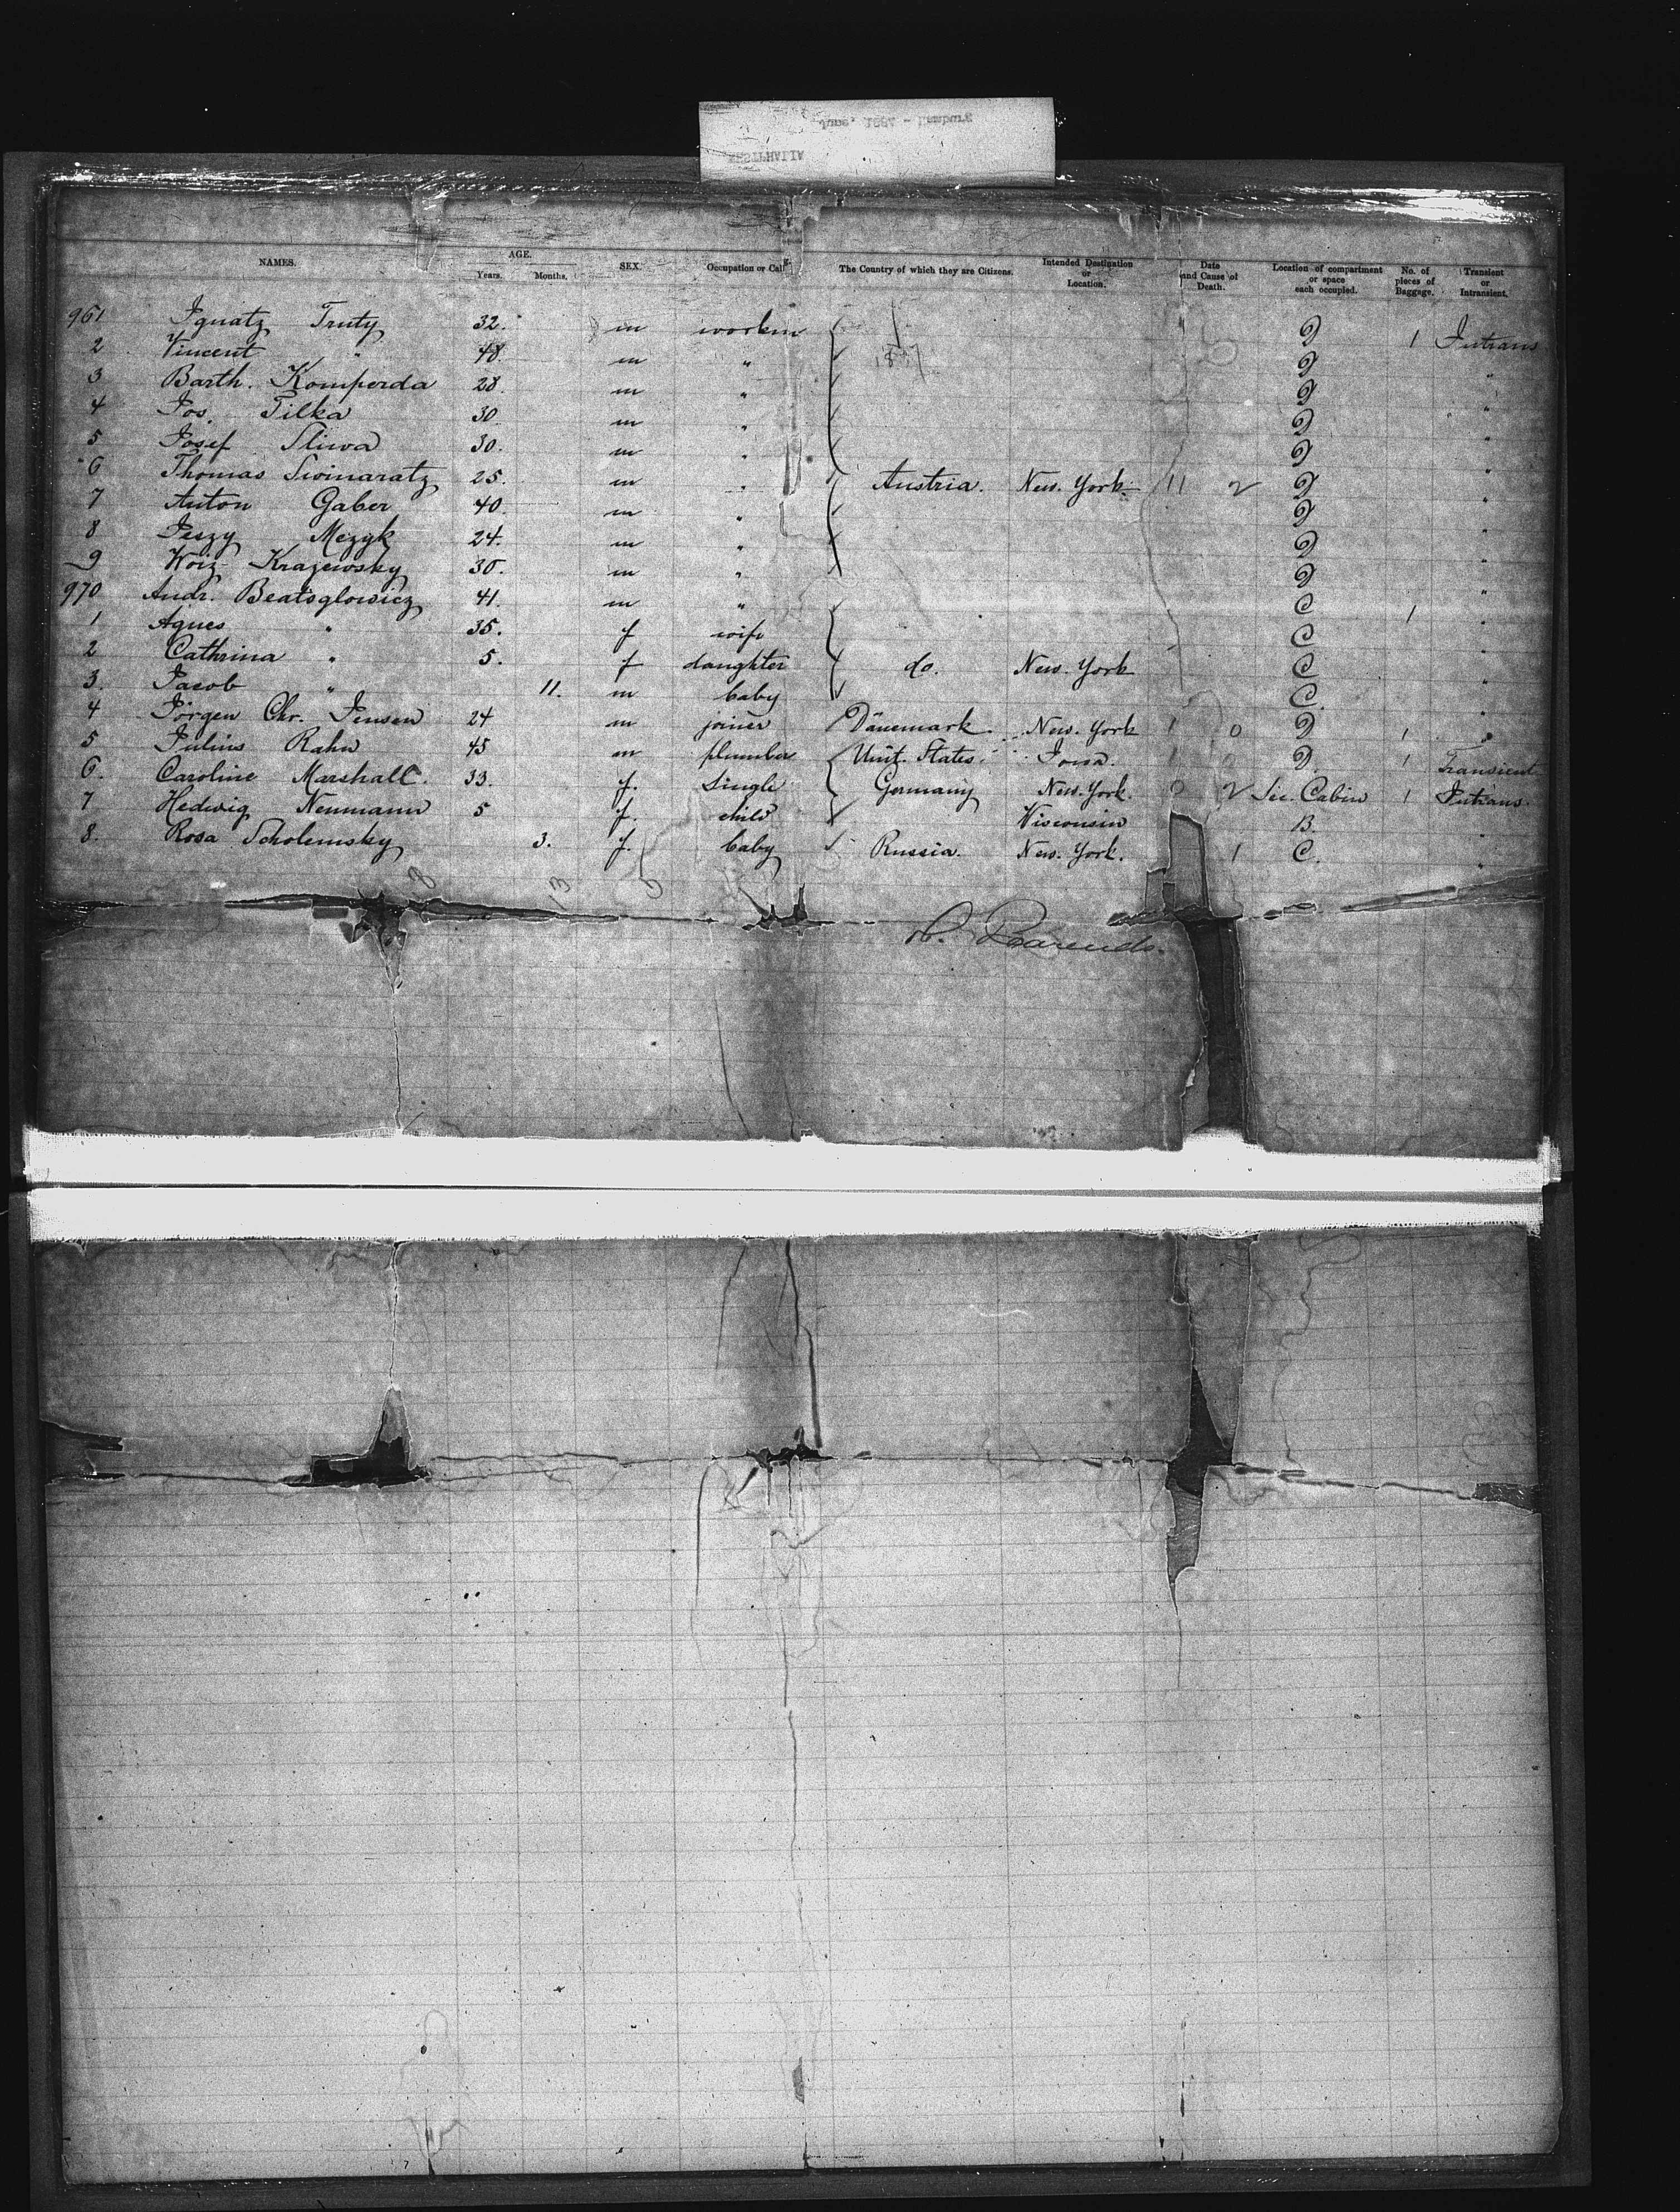 WESTPHALIA
NAMES. AGE. Years. Months. SEX. Occupation or Call'g. The Country of which they are Citizens. Intended Destination or Location. Date and Cause of Death. Location of compartment or space each occupied. No. of pieces of Baggage. Transient or Intransient.
961 Ignatz Truty 32. m workm D 1 Intrans
2 Vincent " 48. m " D "
3 Barth. Komperda 28 m " D "
4 Jos. Pilka 30 m " D "
5 Josef Sliwa 30. m " D "
6 Thomas Swinaratz 25. m " Austria. New. York. 11 2 D "
7 Anton Gaber 40. m " D "
8 Mczyk 24. m " D "
9 Krajewsky 30. m " D "
970 Andr. Beatsglowicz 41. m " C 1 "
1 Agnes " 35. f wife C "
2 Cathrina " 5. f daughter do. New. York C "
3. Jacob " 11. m baby C. "
4 Jörgen Chr. Jensen 24 m joiner Dänemark. New. York 1 0 D 1 "
5 Julius Rahn 45 m plumber Unit. States. Iowa. 1 0 D. 1 Transient
6. Caroline Marshall. 33. f. Single Germany New. York. 0 2 Sec. Cabin 1 Intrans.
7 Hedwig Neumann 5 f. child Wisconsin B. "
8. Rosa Scholemsky 3. f. baby Russia. New. York. 1 C. "